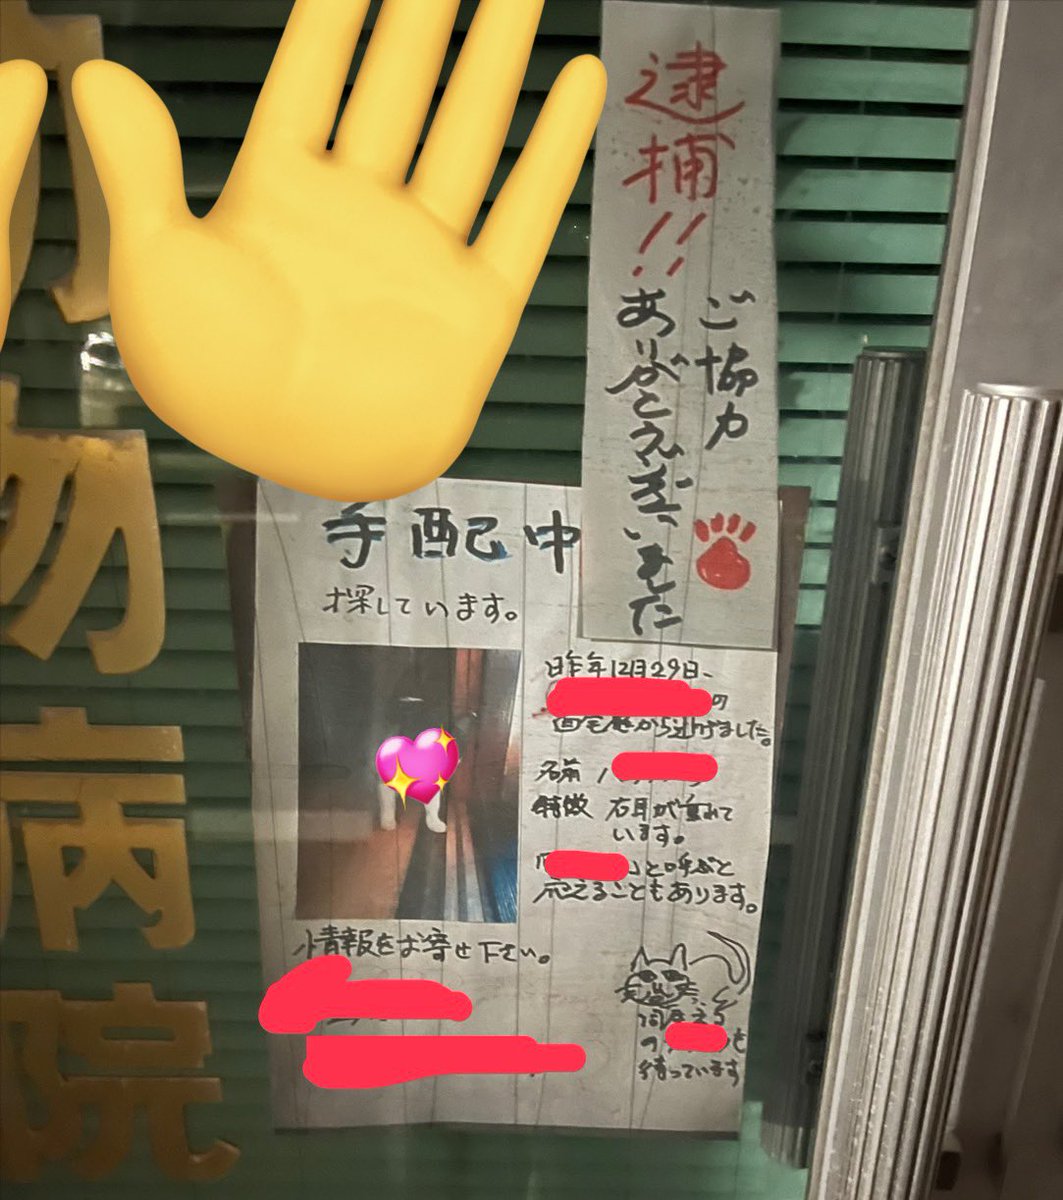 動物病院
逮捕!!
ご協力
ありがとうございました
手配中
探しています。
昨年12月29日、
の
自宅
から逃げました。
名前
特徴 右耳が垂れて
います。
と呼ぶと
応えることもあります。
情報をお寄せ下さい。
を
待っています